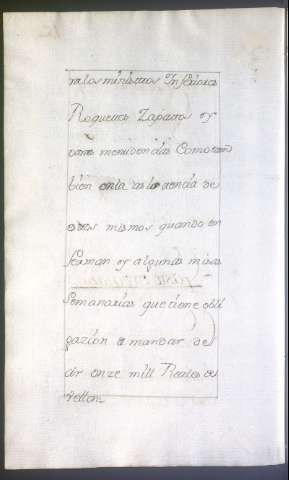 ra los ministros Inferiores
Roquetes Zapatos y
otras menudencias Como tam
bien en la asistencia de
estos mismos quando en
ferman y algunas misas
semanarias que tiene obli
gazion a mandar de
zir onze mill Reales de
vellon